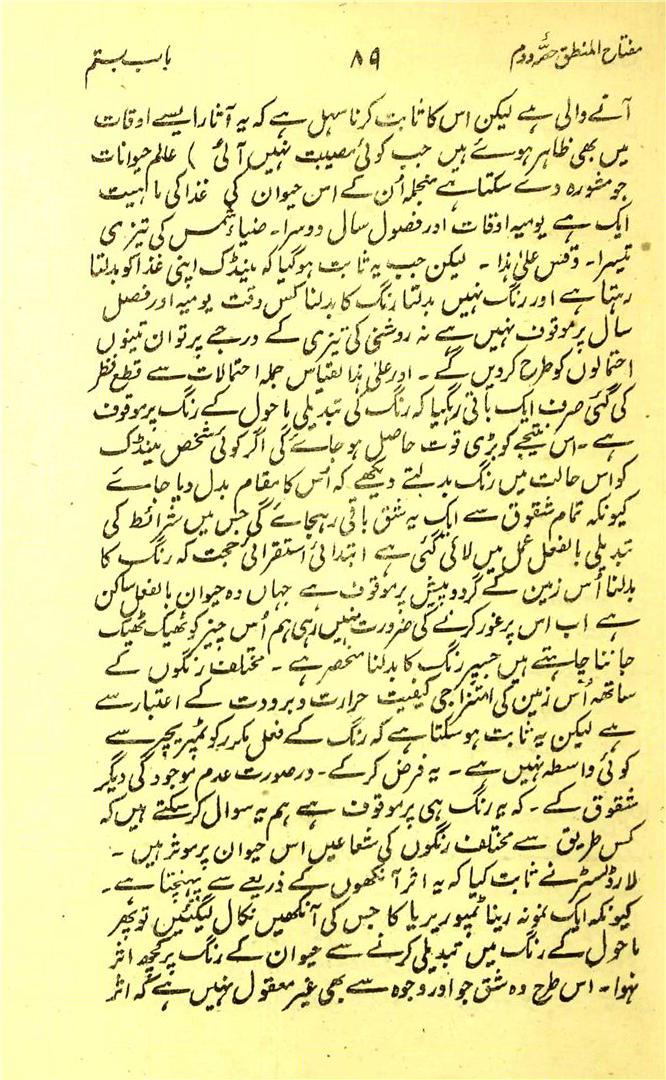 مفتاح المنطق حصّہ دوم ۸۹ باب بستم
آنے والی ہے لیکن اس کا ثابت کرنا سہل ہے کہ یہ آثار ایسے اوقات
میں بھی ظاہر ہوئے ہیں جب کوئی مصیبت نہیں آئی ) عالم حیوانات
جو مشورہ دے سکتا ہے منجملہ اُن کے اس حیوان کی غذا کی ماہیت
ایک ہے یومیہ اوقات اور فصول سال دوسرا۔ ضیاء شمس کی تیزی
تیسرا۔ وقس علیٰ ہٰذا ۔ لیکن جب یہ ثابت ہوگیا کہ مینڈک اپنی غذا کو بدلتا
رہتا ہے اور رنگ نہیں بدلتا رنگ کا بدلنا کس وقت یومیہ اور فصل
سال پر موقوف نہیں ہے نہ روشنی کی تیزی کے درجے پر تو ان تینوں
احتمالوں کو طرح کردیں گے ۔ اور علیٰ ہٰذا لقیاس جملہ احتمالات سے قطع نظر
کی گئی صرف ایک باقی رہگیا کہ رنگ کی تبدیلی ماحول کے رنگ پر موقوف
ہے ۔ اس نتیجے کو بڑی قوت حاصل ہو جائے گی اگر کوئی شخص مینڈک
کو اس حالت میں رنگ بدلتے دیکھے کہ اُس کا مقام بدل دیا جائے
کیونکہ تمام شقوق سے ایک یہ شق باقی رہجائے گی جس میں شرائط کی
تبدیلی بالفعل عمل میں لائی گئی ہے ابتدائی استقرائی حجت کہ رنگ کا
بدلنا اُس زمین کے گرد و پیش پر موقوف ہے جہاں وہ حیوان بالفعل ساکن
ہے اب اس پر غور کرنے کی ضرورت نہیں رہی ہم اُس چیز کو ٹھیک ٹھیک
جاننا چاہتے ہیں جسپر رنگ کا بدلنا منحصر ہے ۔ مختلف رنگوں کے
ساتھ اُس زمین کی امتزاجی کیفیت حرارت و برودت کے اعتبار سے
ہے لیکن یہ ثابت ہو سکتا ہے کہ رنگ کے فعل مکرر کو ٹمپریچر سے
کوئی واسطہ نہیں ہے ۔ یہ فرض کرکے ۔ درصورت عدم موجودگی دیگر
شقوق کے ۔ کہ یہ رنگ ہی پر موقوف ہے ہم یہ سوال کرسکتے ہیں کہ
کس طریق سے مختلف رنگوں کی شعاعیں اس حیوان پر موثر ہیں ۔
لارڈ لسٹر نے ثابت کیا کہ یہ اثر آنکھوں کے ذریعے سے پہنچتا ہے ۔
کیونکہ ایک نمونہ رینا ٹمپوریریا کا جس کی آنکھیں نکال لیگئیں تو پھر
ماحول کے رنگ میں تبدیلی کرنے سے حیوان کے رنگ پر کچھ اثر
نہوا ۔ اس طرح وہ شق جو اور وجوہ سے بھی غیر معقول نہیں ہے کہ اثر